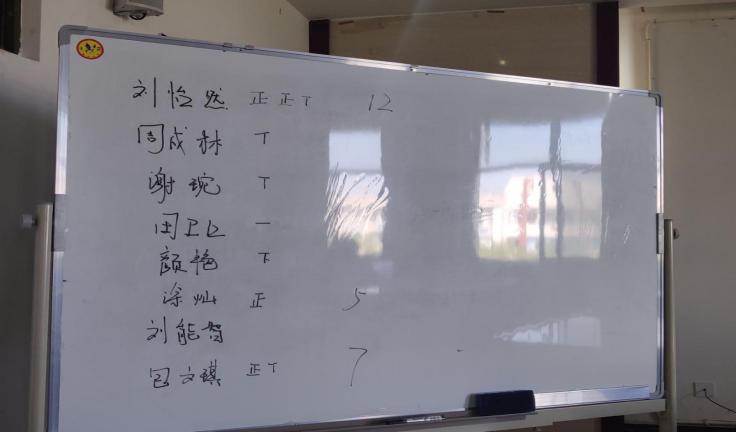 刘怡然 正 正 丅 12
周成林 丅
谢琬 丅
周卫 一
颜艳 下
涂灿 正 5
刘能智
包文琪 正 丅 7